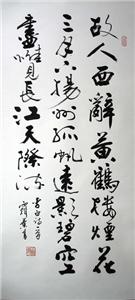 故人西辭黃鶴樓煙花
三月下揚州孤帆遠影碧空
盡惟見長江天際流
李白詩一首